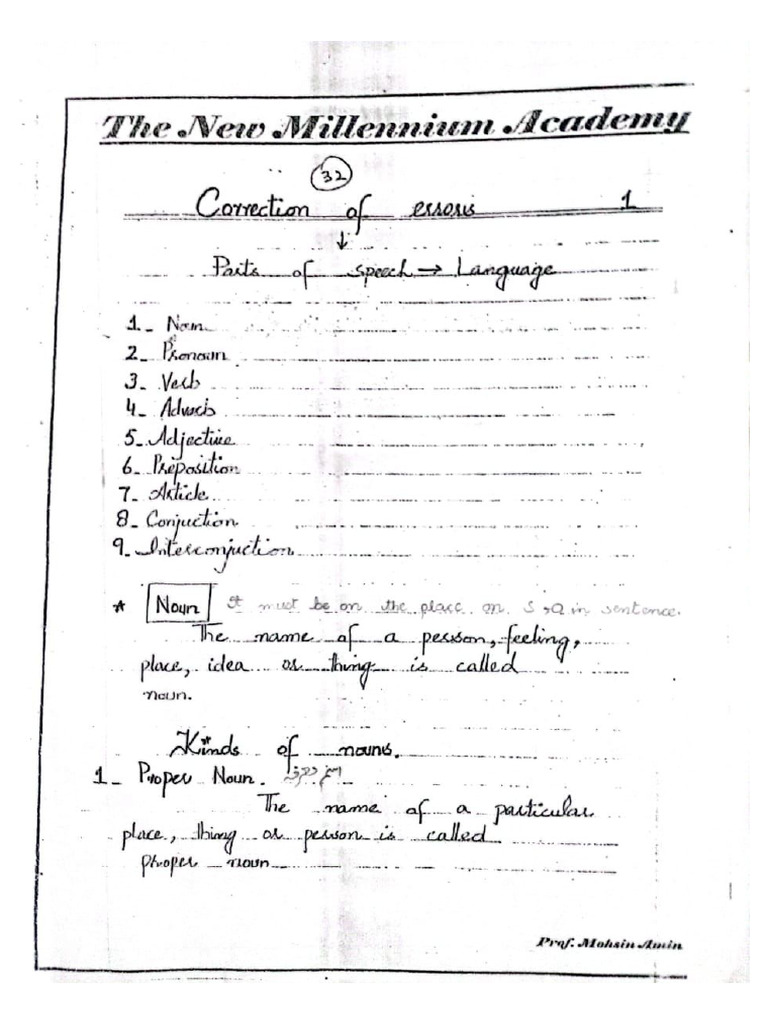 The New Millennium Academy
32
Correction of errors 1
↓
Parts of speech → Language
1- Noun
2- Pronoun
3- Verb
4- Adverb
5- Adjective
6- Preposition
7- Article
8- Conjuction
9- Interconjuction
* Noun It must be on the place on S, O in sentence.
The name of a person, feeling,
place, idea or thing is called
noun.
Kinds of nouns.
1- Proper Noun.
The name of a particular
place, thing or person is called
proper noun
Prof. Mohsin Amin